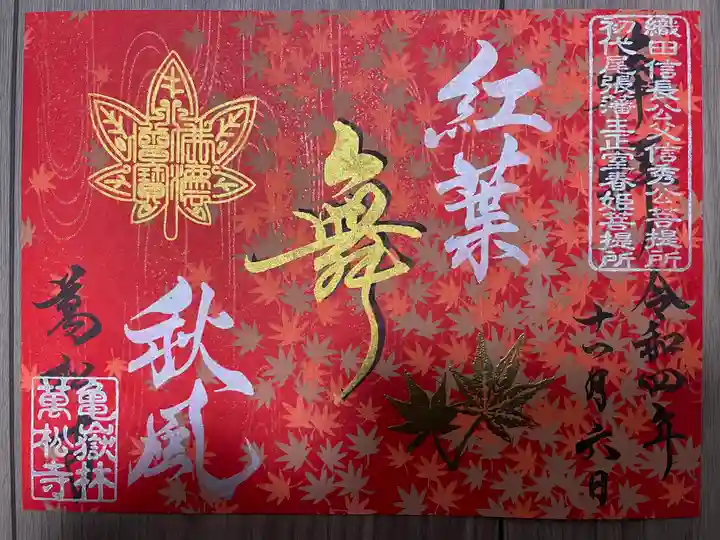 織田信長公父信秀公菩提所
初代尾張藩主正室春姫菩提所
令和四年
十一月六日
紅葉
舞
秋風
亀嶽林
萬松寺